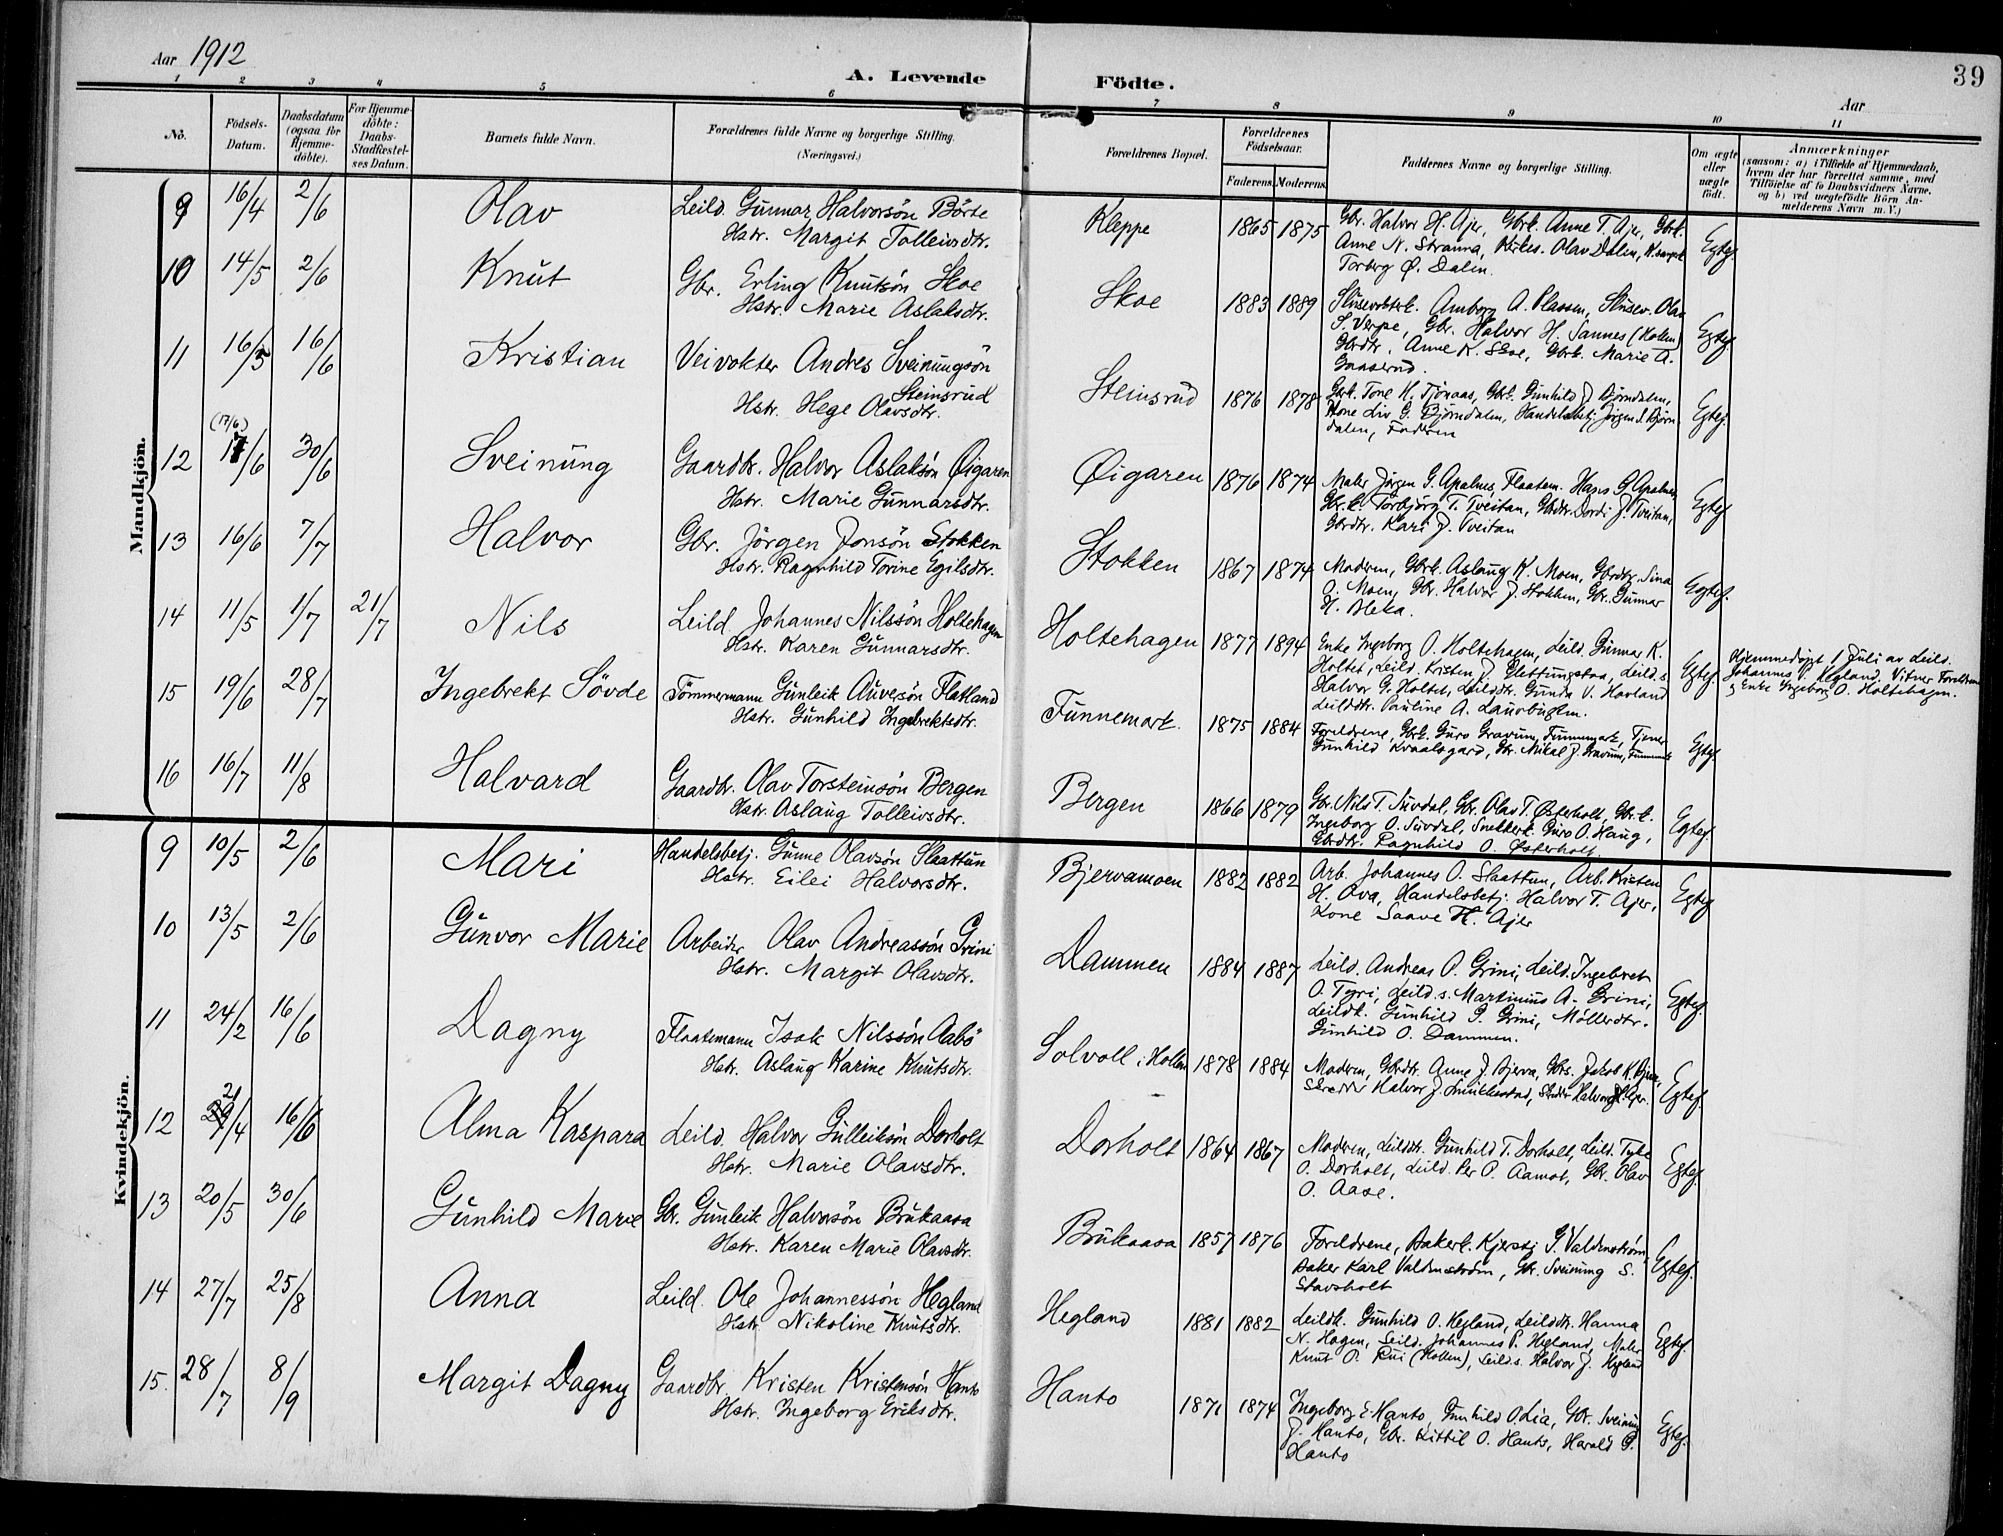 Aar 1912
A. Levende Födte.
39
Aar
1 2 3 4 5 6 7 8 9 10 11
No.
Födsels-Datum.
Daabsdatum (ogsaa for Hjemme-döbte).
For Hjemme-döbte: Daabs-Stadfæstel-ses Datum.
Barnets fulde Navn.
Forældrenes fulde Navne og borgerlige Stilling. (Næringsvei.)
Forældrenes Bopæl.
Forældrenes Födselsaar.
Faderens. Moderens.
Faddernes Navne og borgerlige Stilling.
Om ægte eller uægte födt.
Anmærkninger
(saasom: a) i Tilfælde af Hjemmedaab, hvem der har forrettet samme, med Tilföielse af to Daabsvidners Navne, og b) ved uægtefödte Börn An-melderens Navn m. V.)
Mandkjön.
9 16/4 2/6 Olav Leild. Gunnar Halvorsön Börte
Hstr. Margit Tolleivsdtr.
Kleppe 1865 1875 Gbr. Halvor H. Ajer, Gbrk. Anne T. Ajer, Gbrk.
Anne N. Stranna, Kirkes. Olav Dalen,
Torberg Ø. Dalen. Egtef.
10 14/5 2/6 Knut Gbr. Erling Knutsön Skoe
Hstr. Marie Aslaksdtr.
Skoe 1883 1889 Slusevokterk. Amborg A. Plassen, Slusev. Olav
S. Verpe, Gbr. Halvor H. Sannes (Hollen)
Gbrdtr. Anne K. Skoe, Gbrk. Marie A.
Gaaserud. Egtef.
11 16/5 16/6 Kristian Veivokter Andres Sveinungsön
Steinsrud
Hstr. Hege Olavsdtr.
Steinsrud 1876 1878 Gbrk. Tone H. Tjönaas, Gbrk. Gunhild J. Björndalen,
Kone Liv G. Björndalen, Handelsbetj. Jörgen J. Björn
dalen, Faderen Egtef.
(17/6)
12 17/6 30/6 Sveinung Gaardbr. Halvor Aslaksön Øigaren
Hstr. Marie Gunnarsdtr.
Øigaren 1876 1874 Maler Jörgen G. Apalnes, Flaatem. Hans G. Apalnes,
Gbr.k. Torbjörg T. Tveitan, Gbrdtr. Dordi J. Tveitan,
Gbrdtr. Kari J. Tveitan Egtef.
13 16/6 7/7 Halvor Gbr. Jörgen Jonsön Stokken
Hstr. Ragnhild Torine Egilsdtr.
Stokken 1867 1874 Moderen, Gbrk. Aslaug K. Moen, Gbrdtr. Sina
O. Moen, Gbr. Halvor J. Stokken, Gbr. Gunnar
H. Aleka. Egtef.
14 11/5 1/7 21/7 Nils Leild. Johannes Nilssön Holtehagen
Hstr. Karen Gunnarsdtr.
Holtehagen 1877 1894 Enke Ingeborg O. Holtehagen, Leild. Gunnar K.
Holtet, Leild. Kristen J. Glettungstaa, Leild.s.
Halvor G. Holtet, Leilddtr. Gunda V. Havland
Leilddtr. Pauline A. Egtef.
Hjemmedöpt 1 Juli av Leild.
Johannes P. Hegland. Vitner Foreldrene
og Enke Ingeborg O. Holtehagen.
15 19/6 28/7 Ingebrekt Sövde Tömmermann Gunleik Auvesön Flatland
Hstr. Gunhild Ingebrektsdtr.
Funnemark. 1875 1884 Foreldrene, Gbrk. Guro Gravum, Funnemark, Tjener
Gunhild Kvaalsgard, Gbr. Mikal J. Gravum, Funnemark Egtef.
16 16/7 11/8 Halvard Gaardbr. Olav Torsteinsön Bergen
Hstr. Aslaug Tolleivsdtr.
Bergen 1866 1879 Gbr. Nils T. Suvdal, Gbr. Olav T. Østerholt, Gbr.k.
Ingeborg O. Suvdal, Snekkerk. Guro O. Haug,
Gbrdtr. Ragnhild O. Østerholt. Egtef.
Kvindekjön.
9 10/5 2/6 Mari Handelsbetj. Gunne Olavsön Slaattun
Hstr. Eilei Halvorsdtr.
Bjervamoen 1882 1882 Arb. Johannes O. Slaattun, Arb. Kristen
H. Ova, Handelsbetj. Halvor T. Ajer,
Kone Saave H. Ajer Egtef.
10 13/5 2/6 Gunvor Marie Arbeider Olav Andreassön Grini
Hstr. Margit Olavsdtr.
Dammen 1884 1887 Leild. Andreas O. Grini, Leild. Ingebret
O. Tyri, Leild.s. Martinius A. Grini,
Leildk. Gunhild P. Grini, Möllerdtr.
Gunhild O. Dammen. Egtef.
11 24/2 16/6 Dagny Flaatemann Isak Nilssön Aabö
Hstr. Aslaug Karine Knutsdtr.
Solvoll i Hollen 1878 1884 Moderen, Gbrdtr. Anne J. Bjerva, Gbrs. Jakob K. Bjerva,
Skredder Halvor J. Smukkestad, Egtef.
12 21/4 16/6 Alma Kaspara Leild. Halvor Gulleiksön Dorholt
Hstr. Marie Olavsdtr.
Dorholt 1864 1867 Moderen, Leilddtr. Gunhild T. Dorholt, Leild. Tyke
O. Dorholt, Leild. Per O. Aamot, Gbr. Olav
O. Aase. Egtef.
13 20/5 30/6 Gunhild Marie Gbr. Gunleik Halvorsön Brukaasa
Hstr. Karen Marie Olavsdtr.
Brukaasa 1857 1876 Foreldrene, Bakerk. Kjersti G. Valdenström,
Baker Karl Valdenström, Gbr. Sveinung S.
Stavsholt Egtef.
14 27/7 25/8 Anna Leild. Ole Johannessön Hegland
Hstr. Nikoline Knutsdtr.
Hegland 1881 1882 Leildk. Gunhild O. Hegland, Leilddtr. Hanna
N. Hagen, Leild. Johannes P. Hegland, Maler
Knut O. Rui (Hollen), Leild.s. Halvor J. Hegland Egtef.
15. 28/7 8/9 Margit Dagny Gaardbr. Kristen Kristensön Hanto
Hstr. Ingeborg Eriksdtr.
Hanto 1871 1874 Ingeborg E. Hanto, Gunhild O. Lia, Gbr. Sveinung
J. Hanto, Gbr. Kittil O. Hanto, Harald G.
Hanto Egtef.